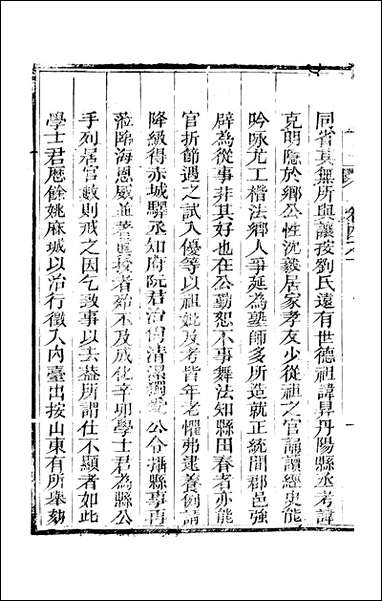 同省真無所與讓按劉氏遠有世德祖諱具丹陽縣丞考諱
克明隱於鄉公性沈毅居家孝友少從祖之官誦讀經史能
吟咏尤工楷法鄉人爭延為塾師多所造就正統間郡邑強
辟為從事非其好也在公勤恕不事舞法知縣田春者亦能
官折節遇之試入優等以祖妣及考皆年老懼弗逮養例請
降級得赤城驛丞知府阮君治尚清潔獨 公令攝縣事再
蒞臨海恩威並著 後者殆不及成化辛卯學士君為縣公
手列居官數則戒之因乞致事以去蓋所謂仕不顯者如此
學士君歷餘姚麻城以治行徵入內臺出按山東有所舉劾